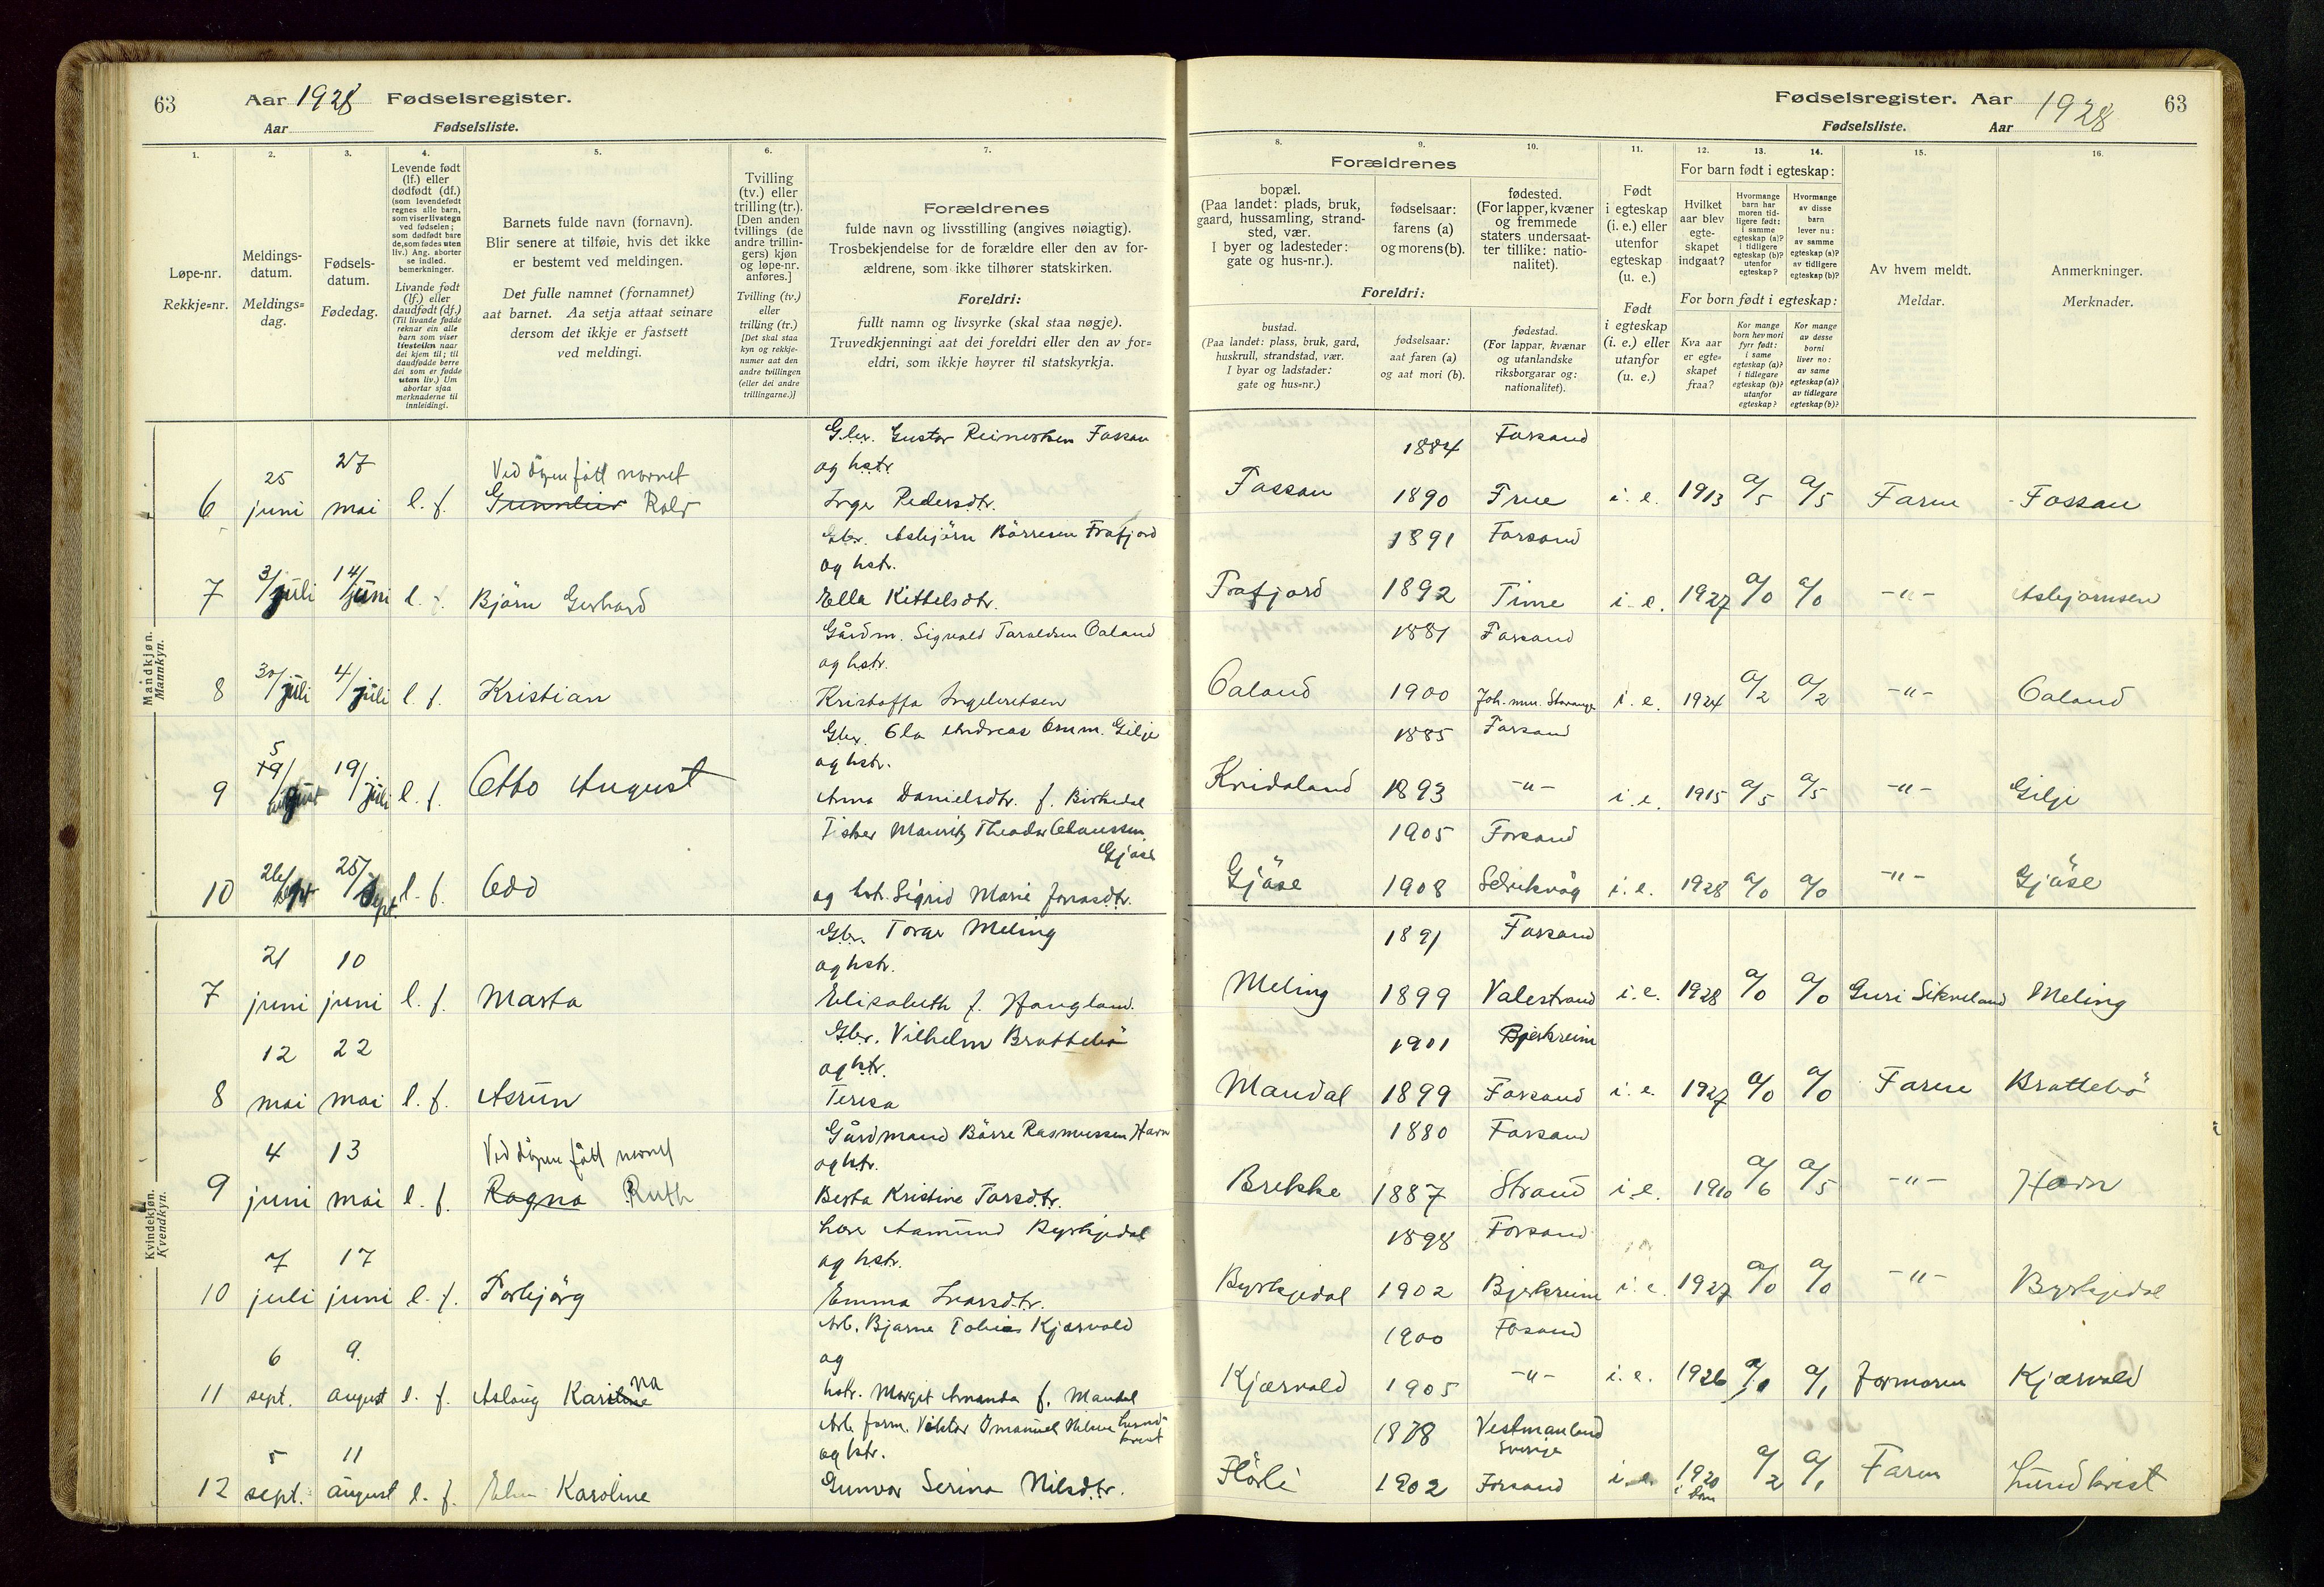 63 Aar 1928 Fødselsregister.
Aar Fødselsliste.
1.
2.
3.
4.
5.
6.
7.
Løpe-nr.
Rekkje=nr.
Meldings-
datum.
Meldings=
dag.
Fødsels-
datum.
Fødedag.
Levende født
(lf.) eller
dødfødt (df.)
(som levendefødt
regnes alle barn,
som viser livstegn
ved fødselen;
som dødfødt bare
de, som fødes uten
liv.) Ang. aborter
se indled.
bemerkninger.
Livande født
(lf.) eller
daudfødt (df.)
(Til livande fødde
reknar ein alle
barn som viser
livsteikn naar
dei kjem til; til
daudfødde berre
dei som er fødde
utan liv.) Um
abortar sjaa
merknaderne til
innleidingi.
Barnets fulde navn (fornavn).
Blir senere at tilføie, hvis det ikke
er bestemt ved meldingen.
Det fulle namnet (fornamnet)
aat barnet. Aa setja attaat seinare
dersom det ikkje er fastsett
ved meldingi.
Tvilling
(tv.) eller
trilling (tr.).
[Den anden
tvillings (de
andre trillin-
gers) kjøn
og løpe-nr.
anføres.]
Tvilling (tv.)
eller
trilling (tr.)
[Det skal staa
kyn og rekkje-
numer aat den
andre tvillingen
(eller dei andre
trillingarne.)]
Forældrenes
fulde navn og livsstilling (angives nøiagtig).
Trosbekjendelse for de forældre eller den av for-
ældrene, som ikke tilhører statskirken.
Foreldri:
fullt namn og livsyrke (skal staa nøgje).
Truvedkjenningi aat dei foreldri eller den av for=
eldri, som ikkje høyrer til statskyrkja.
Mandkjøn.
Mannkyn.
6 25 juni 27 mai l. f. Ved dåpen fått navnet
Rolv
og hstr.
Inger Pedersdtr.
7 3/juli 14/juni l. f. Bjørn Gerhard
Gbr. Asbjørn Børresen Frafjord
og hstr.
Ella Kittelsdtr.
8 30/juli 4/juli l. f. Kristian
Gårdm. Sigvald Taraldsen Oaland
og hstr.
Kristoffa Ingebretsen
9 5 19/august 19/juli l. f. Otto August
Gbr. Ola Andreas Gilje
og hstr.
Anna Danielsdtr. f. Birkedal
10 26/sept 25/sept. l. f. Odd
Fisker Mauritz Theodor
Gjøse
og hstr. Sigrid Marie Jonasdtr.
Kvindekjøn.
Kvendkyn.
7 21 juni 10 juni l. f. Marta
Gbr. Torger Meling
og hstr.
Elisabeth f. Haugland.
8 12 mai 22 mai l. f. Asrun
Gbr. Vilhelm Brattebø
og hstr.
Teresa
9 4 juni 13 mai l. f. Ved dåpen fått navnet
Ragna Ruth
Gårdmand Børre Rasmussen Havn
og hstr.
Berta Kristine Tarsdtr.
10 7 juli 17 juni l. f. Torbjørg
Aamund Byrkjedal
og hstr.
Emma Ivarsdtr.
11 6 sept. 9. august l. f. Aslaug
Arb. Bjarne Tobias Kjærvold
og
hstr. Margit Amanda f. Mandal
12 5 sept. 11 august l. f. Karoline
Arb. form. Viktor Emanuel Lundkvist
og hstr.
Gunvor Serina Nilsdtr.
Fødselsregister. Aar 1928 63
Fødselsliste. Aar
8.
9.
10.
11.
12.
13.
14.
15.
16.
Forældrenes
bopæl.
(Paa landet: plads, bruk,
gaard, hussamling, strand-
sted, vær.
I byer og ladesteder:
gate og hus-nr.).
fødselsaar:
farens (a)
og morens (b).
fødested.
(For lapper, kvæner
og fremmede
staters undersaat-
ter tillike: natio-
nalitet).
Foreldri:
bustad.
(Paa landet: plass, bruk, gard,
huskrull, strandstad, vær.
I byar og ladstader:
gate og hus=nr.)
fødselsaar:
aat faren (a)
og aat mori (b).
fødestad.
(For lappar, kvænar
og utanlandske
riksborgarar og:
nationalitet).
Født
i egteskap
(i. e.) eller
utenfor
egteskap
(u. e.)
Født
i egteskap
(i. e.) eller
utanfor
egteskap
(u. e.)
For barn født i egteskap:
Hvilket
aar blev
egte-
skapet
indgaat?
Hvormange
barn har
moren tid-
ligere født:
i samme
egteskap (a)?
i tidligere
egteskap (b)?
utenfor
egteskap?
Hvormange
av disse
barn
lever nu:
av samme
egteskap (a)?
av tidligere
egteskap (b)?
For born født i egteskap:
Kva aar
er egte-
skapet
fraa?
Kor mange
born hev mori
fyrr født:
i same
egteskap (a)?
i tidlegare
egteskap (b)?
utanfor
egteskap?
Kor mange
av desse
borni
liver no:
av same
egteskap (a)?
av tidlegare
egteskap (b)?
Av hvem meldt.
Meldar.
Anmerkninger.
Merknader.
1884 Forsand
Fossan 1890 i. e. 1913 a/5 a/5 Faren Fossan
1891 Forsand
Frafjord 1892 Time i. e. 1927 a/0 a/0 -"- Asbjørnsen
1881 Forsand
Oaland 1900 i. e. 1924 a/2 a/2 -"- Oaland
1885 Forsand
1893 -"- i. e. 1915 a/5 a/5 -"- Gilje
1905 Forsand
Gjøse 1908 i. e. 1928 a/0 a/0 -"- Gjøse
1891 Forsand
Meling 1899 Valestrand i. e. 1928 a/0 a/0 Guri Meling
1901 Bjerkreim
Mandal 1899 Forsand i. e. 1927 a/0 a/0 Faren Brattebø
1880 Forsand
Brekke 1887 Strand i. e. 1910 a/6 a/5 -"- Havn
1898 Forsand
Byrkjedal 1902 Bjerkreim i. e. 1927 a/0 a/0 -"- Byrkjedal
1900 Forsand
Kjærvold 1905 -"- i. e. 1926 a/1 a/1 Jormoren Kjærvold
1878 Vestmanland
Sverige
Flørli 1902 Forsand i. e. 1920 a/2 a/1 Faren Lundkvist